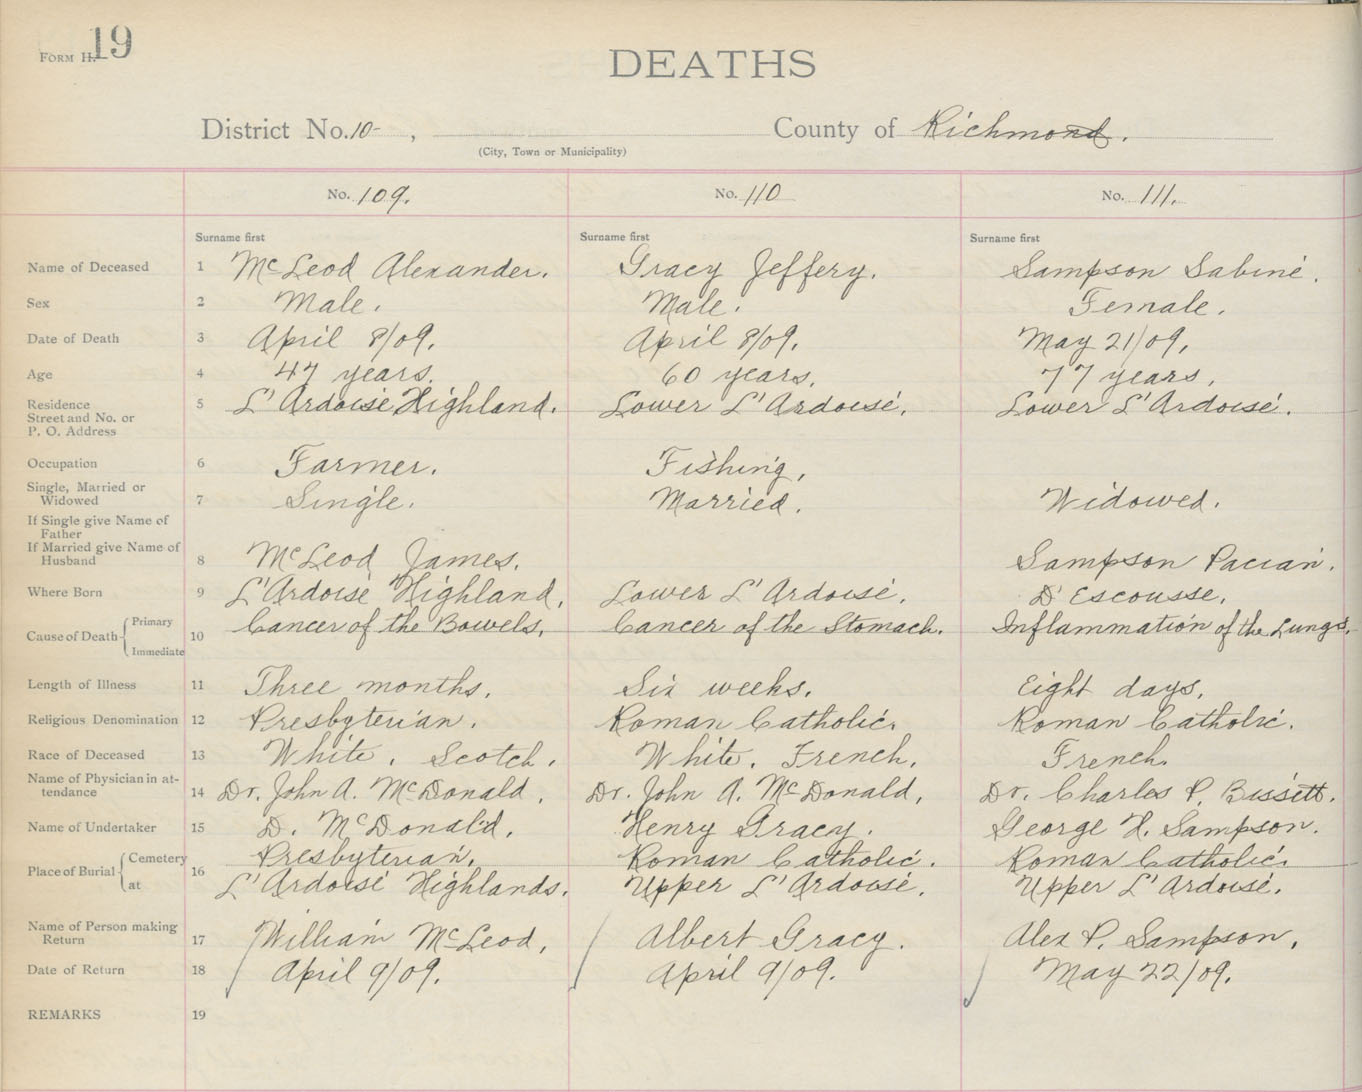 FORM H. 19
DEATHS
District No. 10 , County of Richmond.
(City, Town or Municipality)
No. 109. No. 110 No. 111.
Surname first Surname first Surname first
Name of Deceased 1 McLeod Alexander. Gracy Jeffery. Sampson Sabine.
Sex 2 Male. Male. Female.
Date of Death 3 April 8/09. April 8/09. May 21/09.
Age 4 47 years. 60 years. 77 years.
Residence 5 L'Ardoise Highland. Lower L'Ardoise. Lower L'Ardoise.
Street and No. or
P. O. Address
Occupation 6 Farmer. Fishing.
Single, Married or
Widowed 7 Single. Married. Widowed.
If Single give Name of
Father
If Married give Name of
Husband 8 McLeod James. Sampson Pacian.
Where Born 9 L'Ardoise Highland. Lower L'Ardoise. D'Escousse.
Cause of Death Primary 10 Cancer of the Bowels. Cancer of the Stomach. Inflammation of the Lungs.
Immediate
Length of Illness 11 Three months. Six weeks. Eight days.
Religious Denomination 12 Presbyterian. Roman Catholic. Roman Catholic.
Race of Deceased 13 White. Scotch. White. French. French.
Name of Physician in at-
tendance 14 Dr. John A. McDonald. Dr. John A. McDonald. Dr. Charles P. Bissett.
Name of Undertaker 15 D. McDonald. Henry Gracy. George H. Sampson.
Place of Burial Cemetery 16 Presbyterian. Roman Catholic. Roman Catholic.
at L'Ardoise Highlands. Upper L'Ardoise. Upper L'Ardoise.
Name of Person making
Return 17 William McLeod. Albert Gracy. Alex P. Sampson.
Date of Return 18 April 9/09. April 9/09. May 22/09.
REMARKS 19